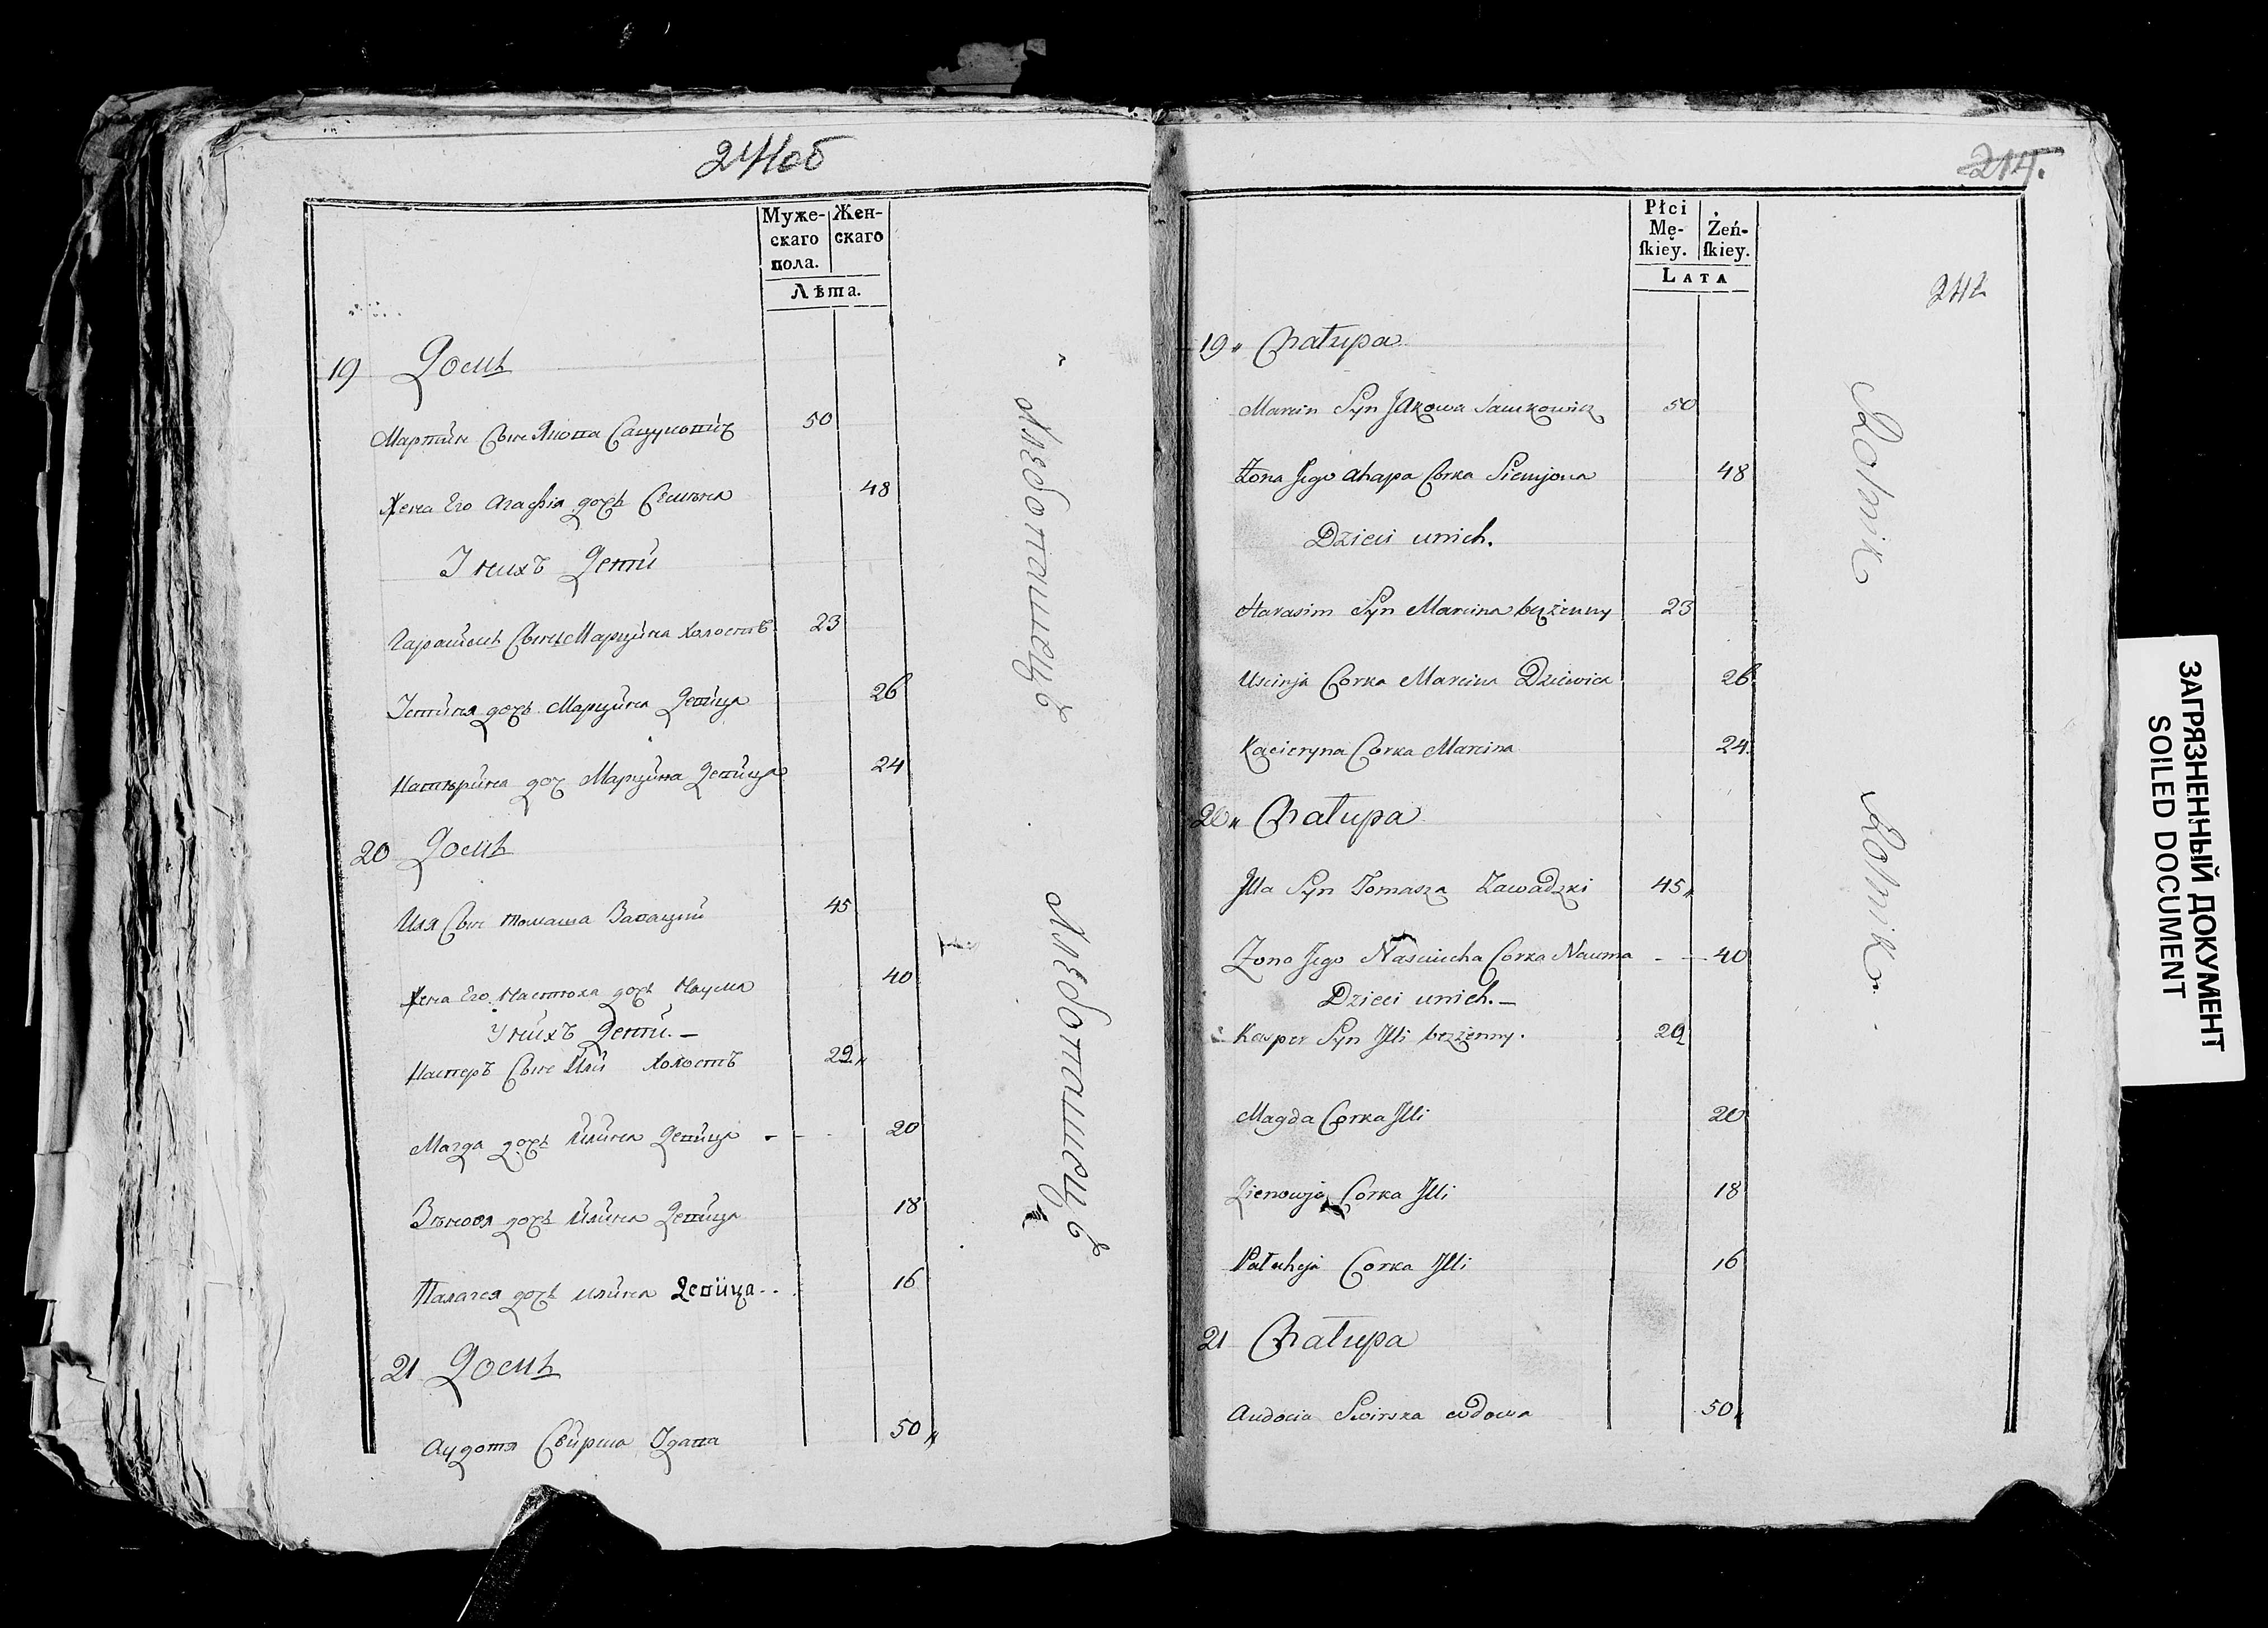 241об
Муже-
скаго
пола.
Жен-
скаго
Лѣта.
19 Домъ
Мартин Сын Якова Сацукович 50
Жена Его Агафия дочь Семена 48
У нихъ дети
Гарасим Сынъ Марцина холостъ 23
Устиня дочь Марцина девица 26
Катерина доч Марцина девица 24
20 Домъ
Иля Сын томаша Завацкий 45
Жена Его Настюха дочь Наума 40
У нихъ Дети. —
Каспер Сын Или Холостъ 22
Магда дочь Илина девица 20
Зеновя дочь Илина девица 18
Палагея дочь илина девица 16
21 Домъ
Аудотя Свирска Вдова 50
Хлебопашецъ
Хлебопашецъ
214.
Płci
Mę-
ſkiey.
Żeń-
ſkiey.
LATA
242
19 Chałupa
Marcin Syn Jakowa 50
Żona Jego Ahapa Corka Siemjona 48
Dzieci unich.
Harasim Syn Marcina bezżenny 23
Uscinja Corka Marcina Dziewica 26
Kacieryna Corka Marcina 24
20 Chałupa
Jlla Syn Tomasza Zawadzki 45
Żona Jego Nasciucha Corka Nauma 40
Dzieci unich. —
Kasper Syn Jlli bezżenny. 22
Magda Corka Jlli 20
Zienowja Corka Jlli 18
Pałaheja Corka Jlli 16
21 Chałupa
Audocia Swirska wdowa 50
Rolnik
Rolnik
ЗАГРЯЗНЕННЫЙ ДОКУМЕНТ
SOILED DOCUMENT